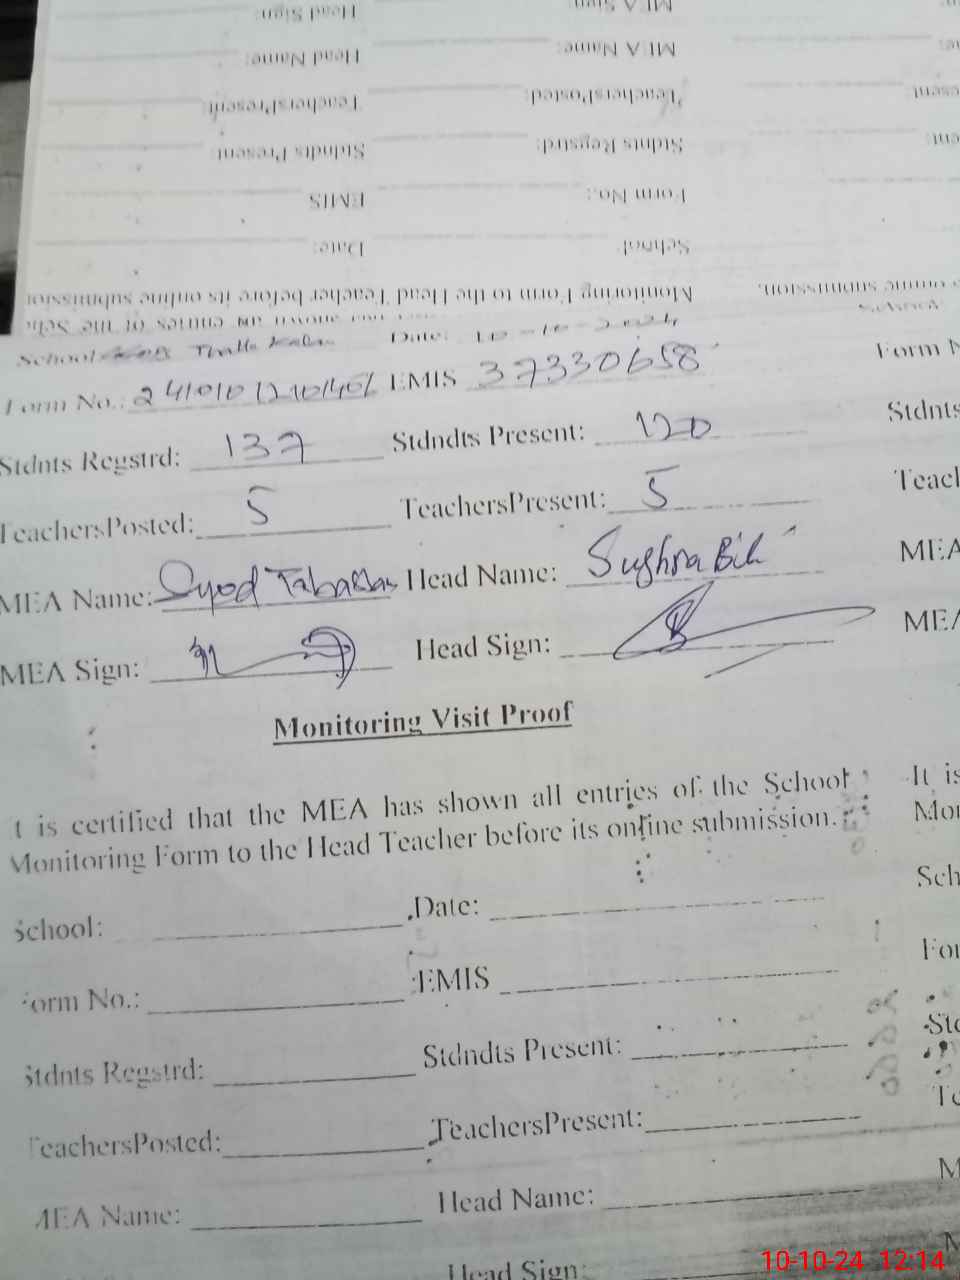 Head Sign: MEA Sign:
Head Name: MEA Name:
TeachersPresent: TeachersPosted:
Stdndts Present: Stdnts Regstrd:
EMIS Form No.:
Date: School:
Monitoring Form to the Head Teacher before its online submission
School: Thatta Kalan Date: 10-10-2024
Form No.: EMIS 37330658
Stdnts Regstrd: 137 Stdndts Present: 120 Stdnts
TeachersPosted: 5 TeachersPresent: 5
MEA Name: Syed Head Name: Sughra Bibi MEA
MEA Sign: Head Sign:
Monitoring Visit Proof
t is certified that the MEA has shown all entries of the School It is
Monitoring Form to the Head Teacher before its online submission.
School: Date: Sch
Form No.: EMIS For
Stdnts Regstrd: Stdndts Present:
TeachersPosted: TeachersPresent:
MEA Name: Head Name: M
Head Sign:
10-10-24 12:14